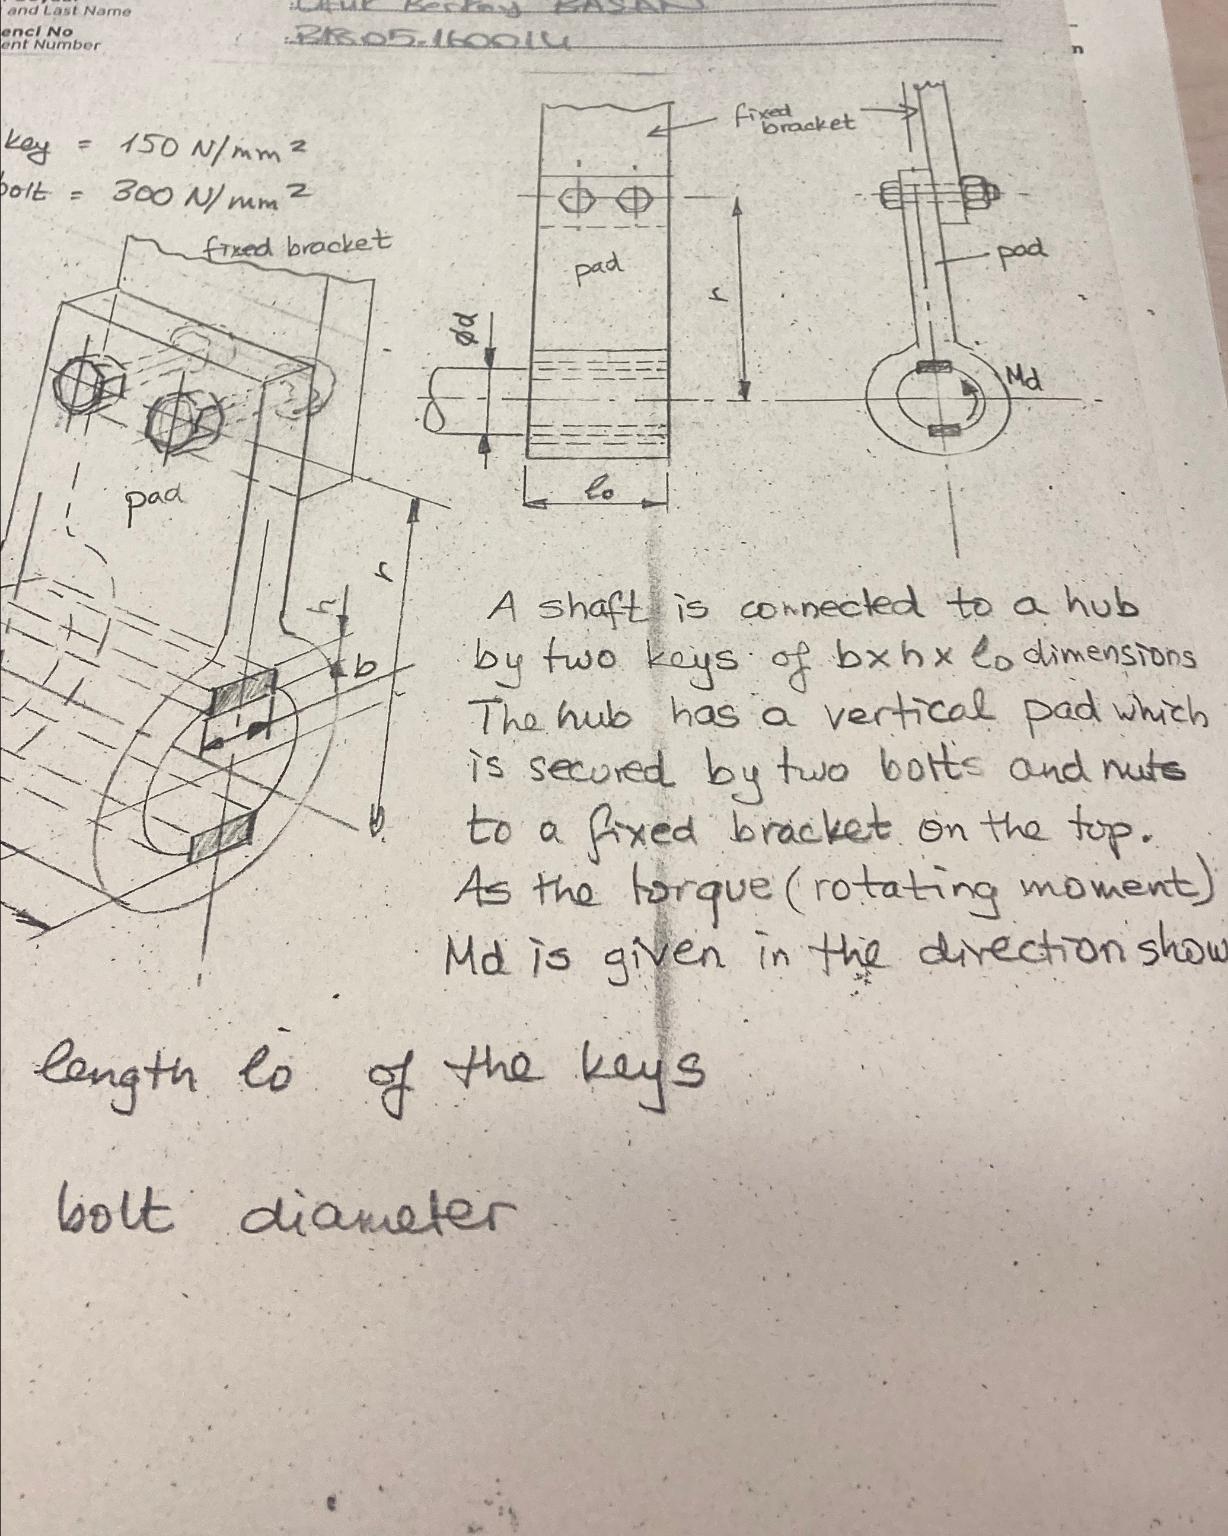 and Last Name
enci No
ent Number
key = 150 N/mm²
bolt = 300 N/mm²
fixed bracket
fixed bracket
pad
pad
pad
r
r
ød
Md
lo
h
b
b
A shaft is connected to a hub
by two keys of b×h×lo dimensions
The hub has a vertical pad which
is secured by two bolts and nuts
to a fixed bracket on the top.
As the torque (rotating moment)
Md is given in the direction show
length lo of the keys
bolt diameter